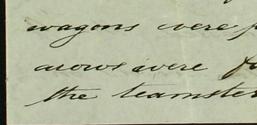 wagons were
arows were
the teamster